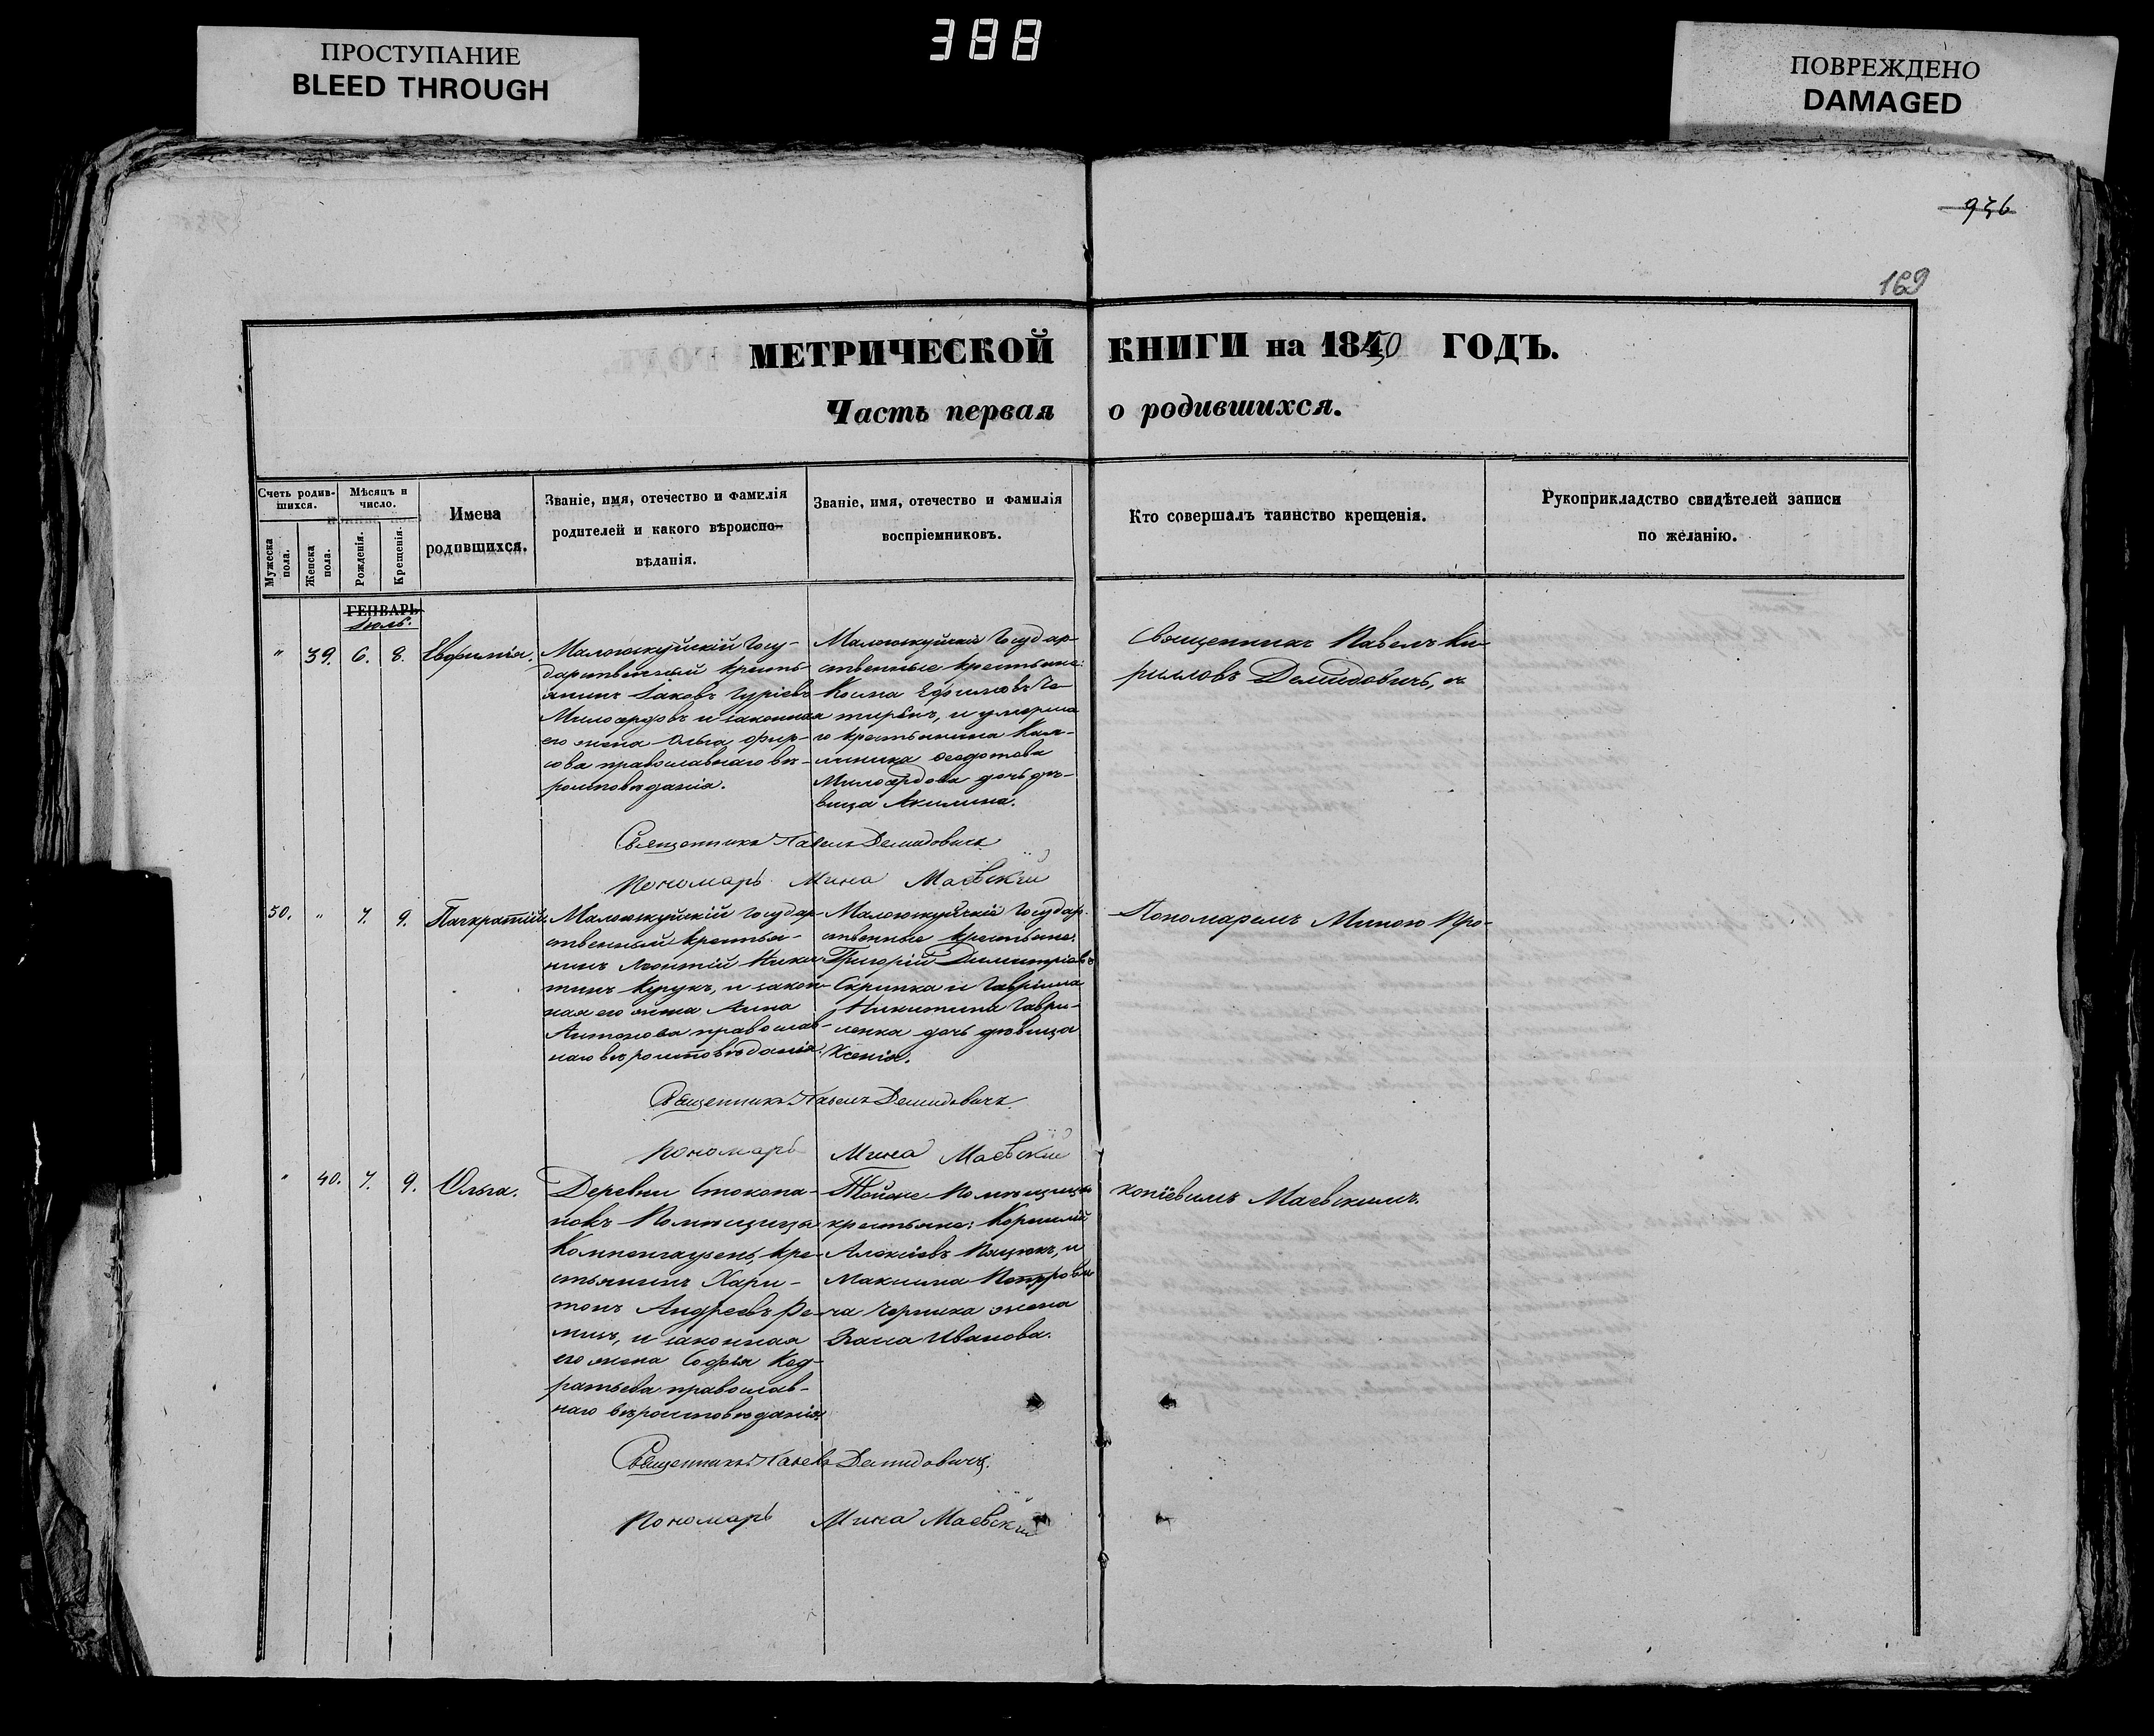 ПРОСТУПАНИЕ
BLEED THROUGH
388
ПОВРЕЖДЕНО
DAMAGED
936
169
МЕТРИЧЕСКОЙ КНИГИ на 1850 ГОДЪ.
Часть первая о родившихся.
Счетъ родив-
шихся.
Мужеска пола.
Женска пола.
Мѣсяцъ и
число.
Рожденія.
Крещенія.
Имена
родившихся.
Званіе, имя, отечество и фамилія
родителей и какого вѣроиспо-
вѣданія.
Званіе, имя, отечество и фамилія
воспріемниковъ.
Кто совершалъ таинство крещенія.
Рукоприкладство свидѣтелей записи
по желанію.
ГЕНВАРЬ
Іюль.
" 39. 6. 8. Евфимія.
Малоюжуйскій Госу-
дарственный кресть-
янинъ Іаковъ Гуріевъ
Милосердовъ и законная
его жена Ольга Фир-
сова православнаго вѣ-
роисповѣданія.
Государ-
ственные крестьяне:
Косма Ефимовъ Че-
тирбкъ, и умерша-
го крестьянина Кал-
линика Феодотова
Милосердова дочь дѣ-
вица Акилина.
Священникъ Павелъ Ки-
рилловъ Демидовичъ, съ
Священникъ Павелъ Демидовичъ
Пономарь Мина Маевскій
50. " 7. 9. Панкратій
Государ-
ственный крестья-
нинъ Леонтій Ники-
тинъ Крукъ, и закон-
ная его жена Анна
Антонова православ-
наго вѣроисповѣданія.
Государ-
ственные крестьяне:
Григорій Димитріевъ
Скрипка и Гавріила
Никитина Гаври-
ленка дочь дѣвица
Ксенія.
Пономаремъ Миною Про-
Священникъ Павелъ Демидовичъ
Пономарь Мина Маевскій
" 40. 7. 9. Ольга.
Деревни Стокопа-
новъ Помѣщицы
Компенгаузенъ, кре-
стьянинъ Хари-
тонъ Андреевъ Ре-
мизъ, и законная
его жена Софья Код-
ратьева православ-
наго вѣроисповѣданія.
Тойже Помѣщицы
крестьяне: Корнилій
Алексіевъ Пацюкъ, и
Максима Петрови-
ча Черныха жена
Іванова.
копіевымъ Маевскимъ.
Священникъ Павелъ Демидовичъ.
Пономарь Мина Маевскій